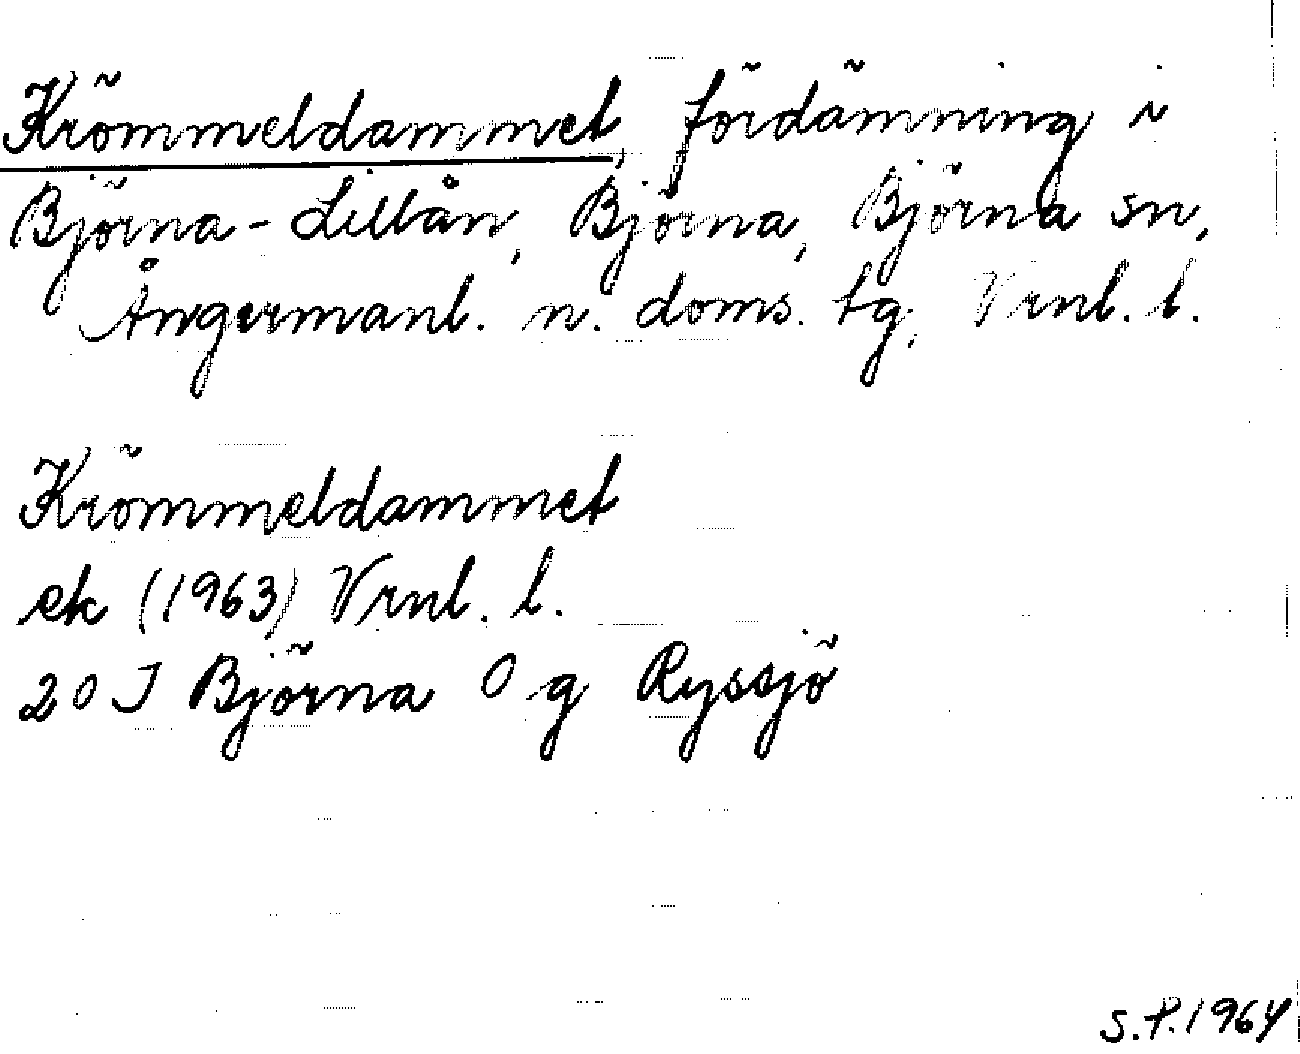 Krömmeldammet, fördämning i
Björna-Lillån, Björna, Björna sn,
Ångermanl. n. doms. tg, Vrnl. l.
Krömmeldammet
ek (1963) Vrnl. l.
20 J Björna 0 g Ryssjö
S.P. 1964